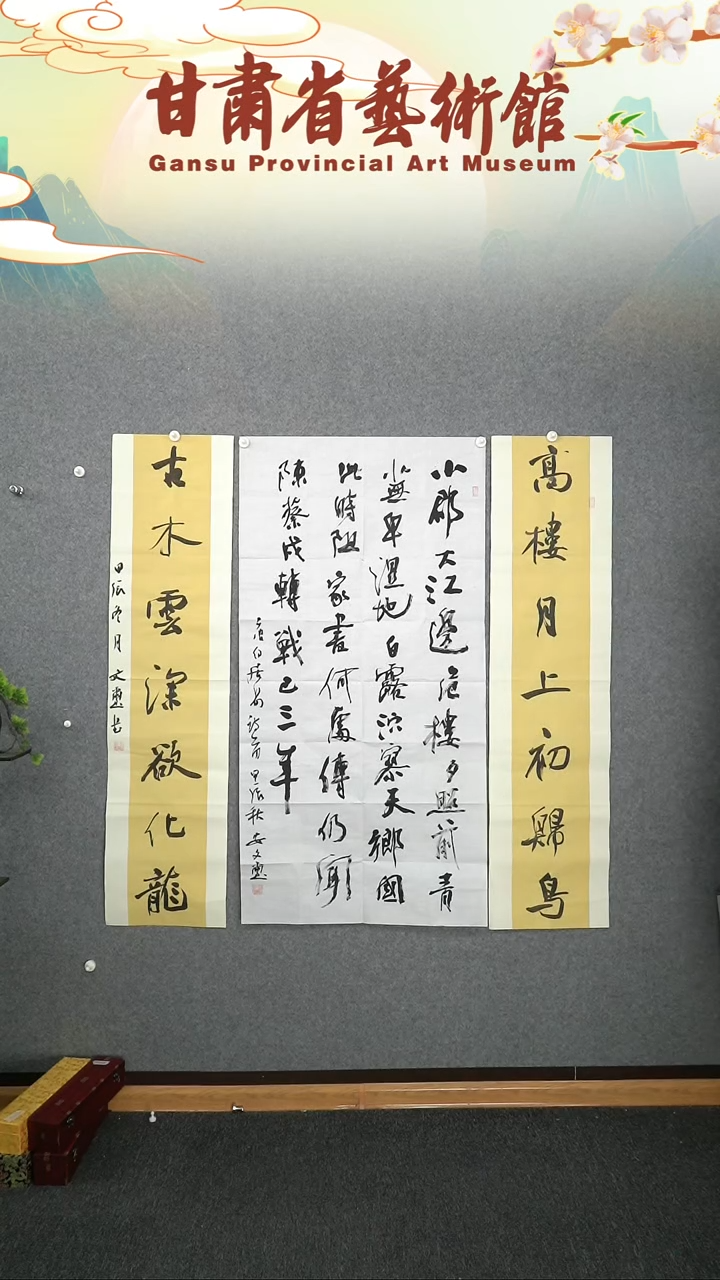 甘肅省藝術館
Gansu Provincial Art Museum
高樓月上初歸鳥
小郡大江邊危樓夕照前青
蕪卑濕地白露泬寥天鄉國
此時阻家書何處傳仍聞
陳蔡戍轉戰已三年
白居易詩 甲辰秋 安文惠
古木雲深欲化龍
甲辰冬月 文惠书